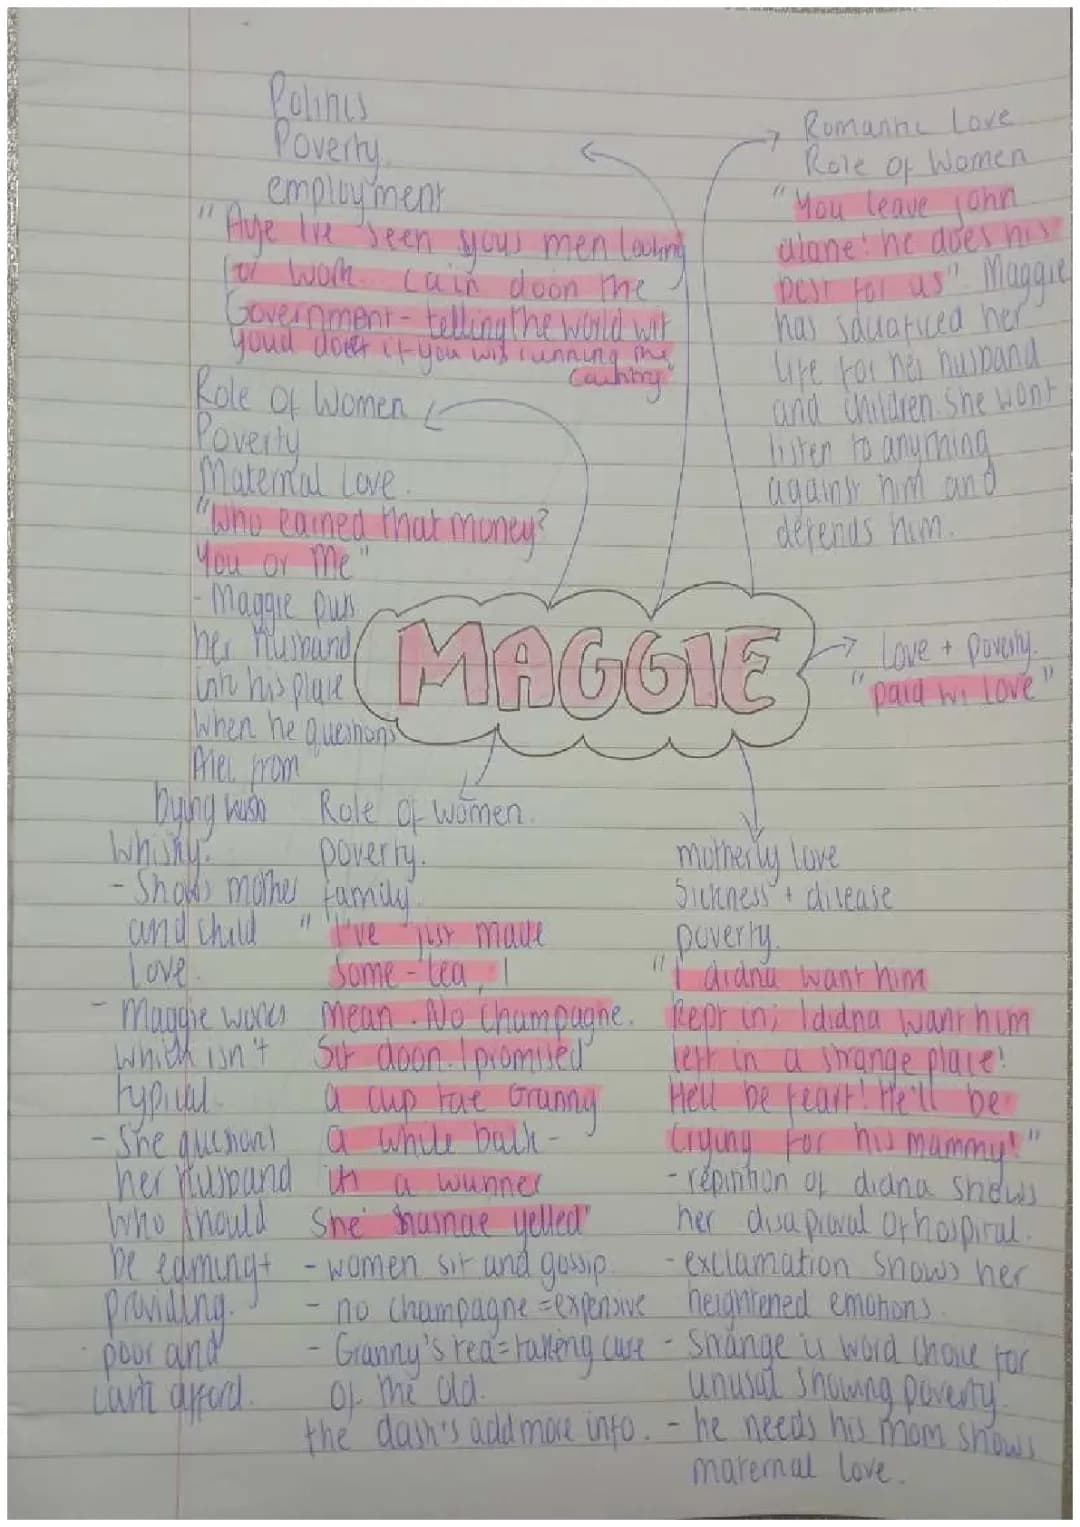 Politics
Poverty.
employment
"Aye I've seen yous men looking
for work. Cain doon the
Government - telling the world wit
youd do if you wis running the
Country"
Role Of Women
Poverty
Maternal Love.
"Who earned that money?
You or Me"
- Maggie puts
her Husband
into his place
when he questions
Alec from
Dying wish
Whisky.
- Shows mother
and child
Love.
- Maggie works
which isn't
typical.
- She questions
her Husband
who should
be earning +
providing.
- poor and
can't afford.
Romantic Love
Role of Women
"You leave John
alone! he does his
best for us". Maggie
has sacraficed her
life for her husband
and children. She wont
listen to anything
against him and
defends him.
MAGGIE
Love + Poverty.
"paid wi Love"
Role of Women.
poverty.
family.
"I've just made
some - tea, I
mean. No champagne.
Sit doon. I promised
a cup tae Granny
a while back -
it's a wunner
She hasnae yelled"
- women sit and gossip.
- no champagne = expensive
- Granny's tea = taking care
of the old.
the dash's add more info.
motherly love
Sickness + disease
poverty.
"I didna want him
kept in; I didna want him
left in a strange place!
He'll be feart! He'll be
crying for his mammy!"
- repitition of didna shows
her disaproval of hospital.
- exclamation shows her
heightened emotions.
- Strange is word choice for
unusal showing poverty.
- he needs his mom shows
maternal love.